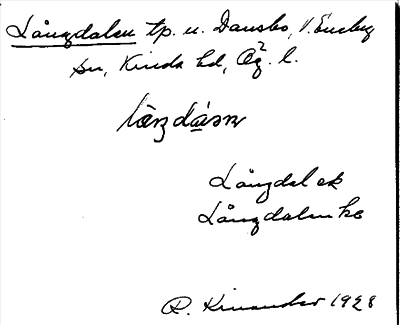 Långdalen tp. u. Dansbo, V. Eneby
sn, Kinda hd, Ög. l.
Långdal ek
Långdalen he
R. Kinander 1928